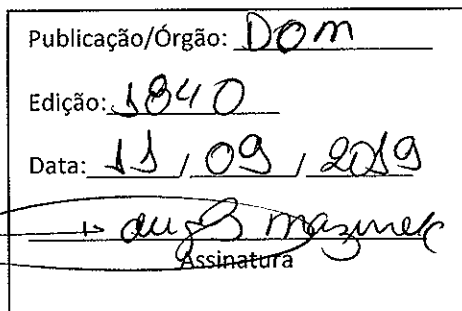 Publicação/Órgão: DOM
Edição: 1840
Data: 11 / 09 / 2019
Assinatura